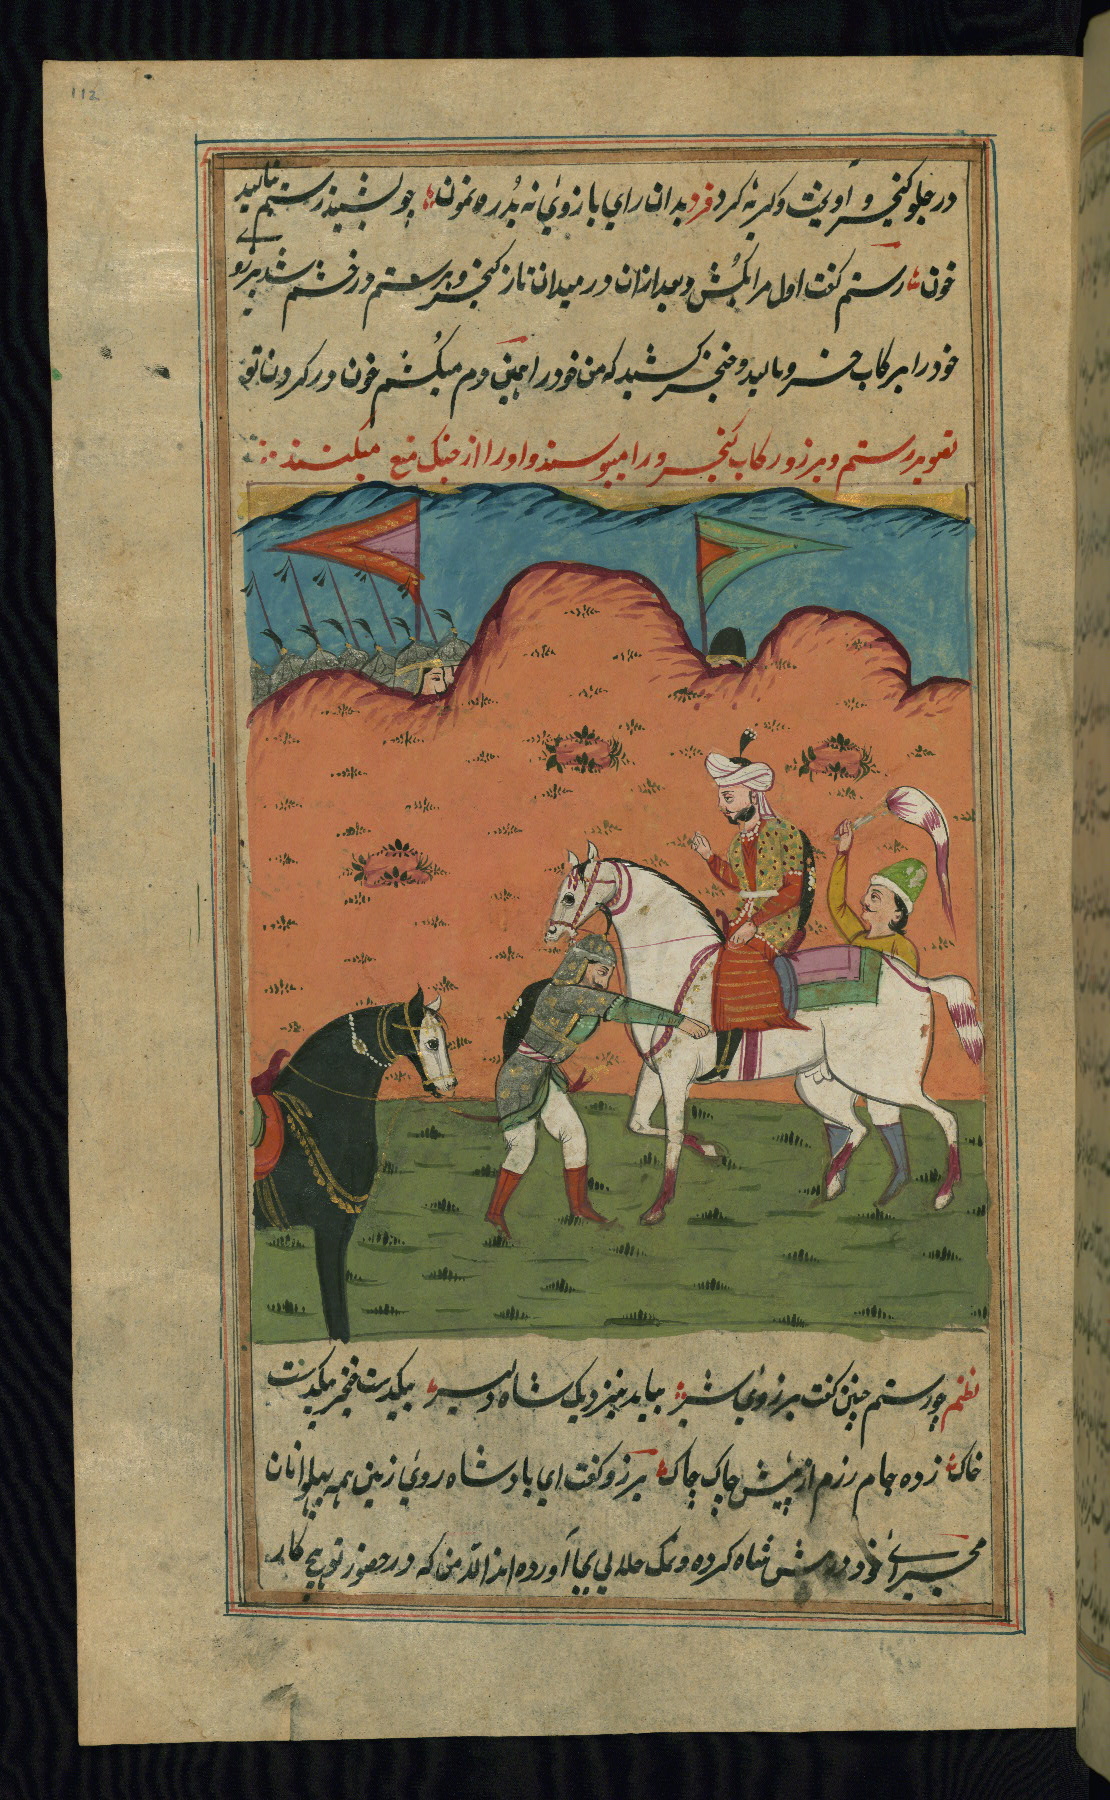 112
در جلو کیخسرو آویخت و گریه کرد فرد بدان رای بازوی نه بُد رهنمون چو بشنید رستم بمالید
خون رستم گفت اول مرا بکُش و بعد ازان در میدان تاز کیخسرو بر رستم در خشم شد برزو
خود را بر رکاب خسرو مالید و خنجر کشید که من خود را همین دم میکُشم خون در گردن تو
تصویر رستم و برزو رکاب کیخسرو را میبوسند و او را از جنگ منع میکنند
نظم چو رستم چنین گفت برزوی شیر بیامد بنزدیک شاه دلیر بیکدست خنجر بیکدست
خاک زده جام رزم از پیش چاک چاک برزو گفت ای بادشاه روی زمین همه پهلوانان
مجرای خود در پیش شاه کرده و نمک حلالی بجا آورده اند الا من که در حضور تو هیچ کار